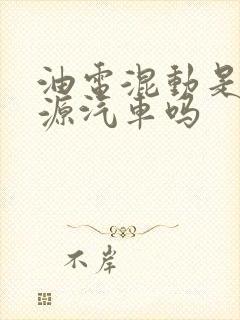 油電混動是
源汽車嗎
不岸